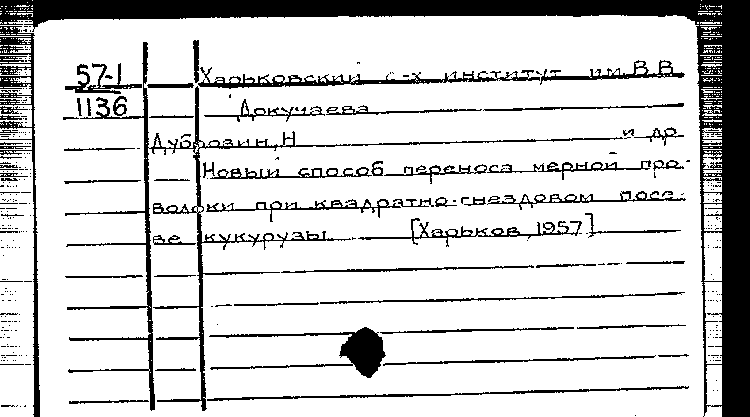 57-1 Харьковский с-х институт им. В.В.
1136 Докучаева
Дубровин, Н и др
Новый способ переноса мерной про-
волоки при квадратно-гнездовом посе-
ве кукурузы. [Харьков, 1957]